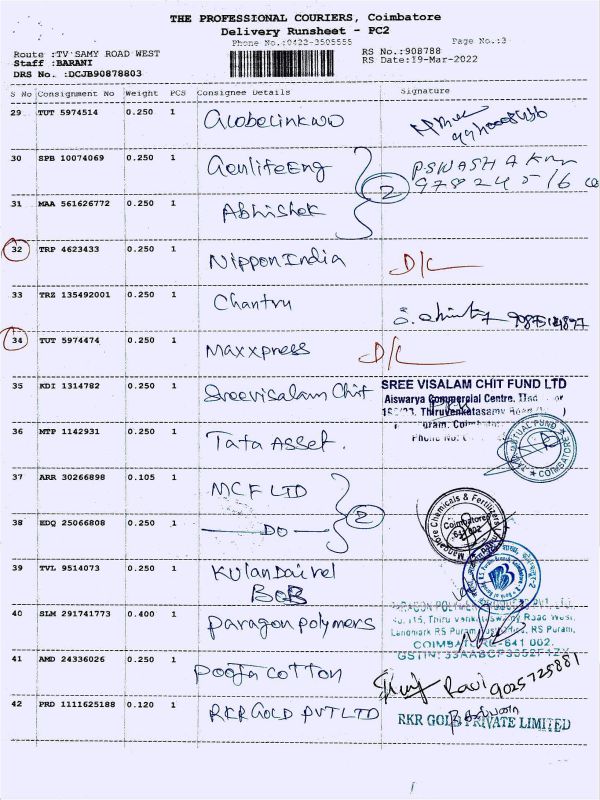 THE PROFESSIONAL COURIERS, Coimbatore
Delivery Runsheet - PC2
Phone No.:0422-3505555 Page No.:3
Route :TV SAMY ROAD WEST RS No.:908788
Staff :BARANI RS Date:19-Mar-2022
DRS No. :DCJB90878803
S No Consignment No Weight PCS Consignee Details Signature
29 TUT 5974514 0.250 1
30 SPB 10074069 0.250 1 GenlifeEng
31 MAA 561626772 0.250 1 Abhishek 2
32 TRP 4623433 0.250 1 Nippon India D/L
33 TRZ 135492001 0.250 1 Chantru
34 TUT 5974474 0.250 1 Maxxpress D/L
35 KDI 1314782 0.250 1 Sreevisalam Chit SREE VISALAM CHIT FUND LTD
Aiswarya Commercial Centre,
Thiruvenkatasamy Road
36 MTP 1142931 0.250 1 Tata Asset. Phone No:
MUTUAL FUND COIMBATORE
37 ARR 30266898 0.105 1 MCF LTD
Mangalore Chemicals & Fertilizers
Coimbatore
38 EDQ 25066808 0.250 1 DO 2
39 TVL 9514073 0.250 1 Kulandaivel
BOB
40 SLM 291741773 0.400 1 Paragon polymers
Road West,
Landmark RS Puram Post Office, RS Puram,
COIMBATORE-641 002.
41 AMD 24336026 0.250 1 Pooja cotton Ravi 9025725881
42 PRD 1111625188 0.120 1 RKR GOLD PVT LTD RKR GOLD PRIVATE LIMITED